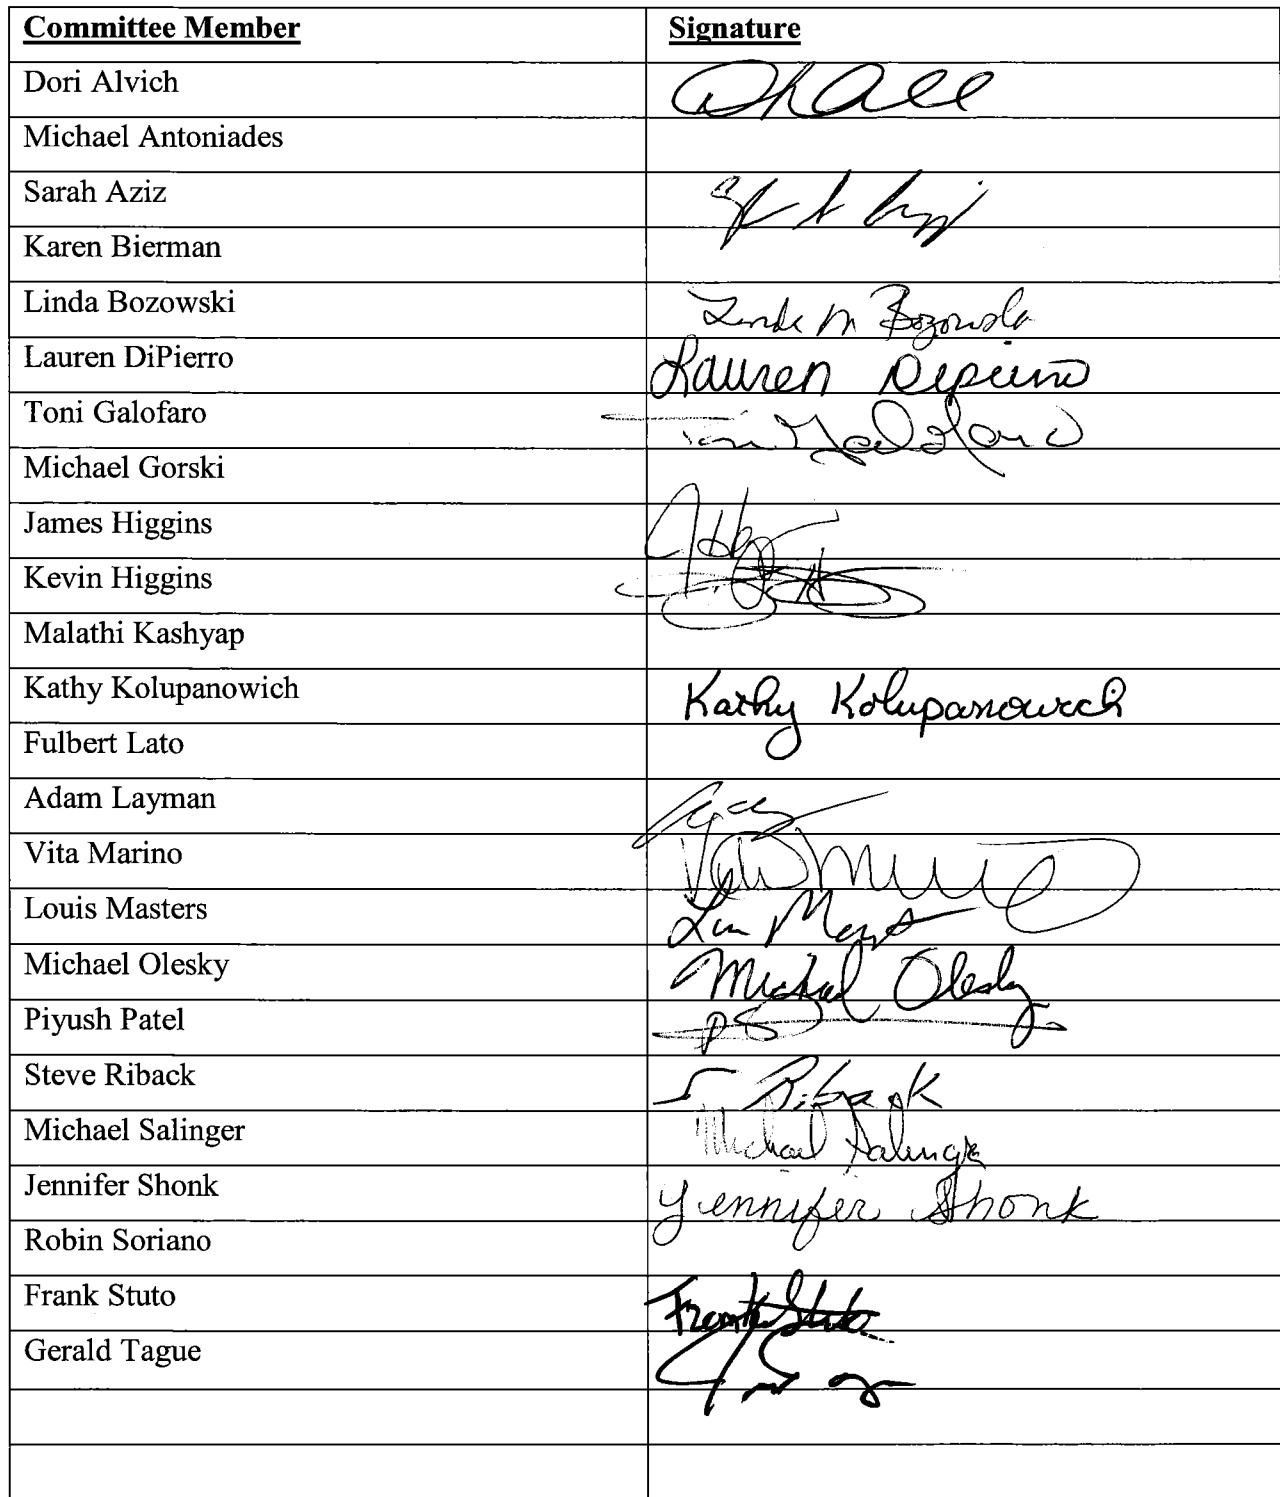 Committee Member Signature
Dori Alvich
Michael Antoniades
Sarah Aziz
Karen Bierman
Linda Bozowski Linda M Bozowski
Lauren DiPierro Lauren DiPierro
Toni Galofaro Toni Galofaro
Michael Gorski
James Higgins
Kevin Higgins
Malathi Kashyap
Kathy Kolupanowich Kathy Kolupanowich
Fulbert Lato
Adam Layman
Vita Marino
Louis Masters
Michael Olesky Michael Olesky
Piyush Patel
Steve Riback S Riback
Michael Salinger Michael Salinger
Jennifer Shonk Jennifer Shonk
Robin Soriano
Frank Stuto Frank Stuto
Gerald Tague